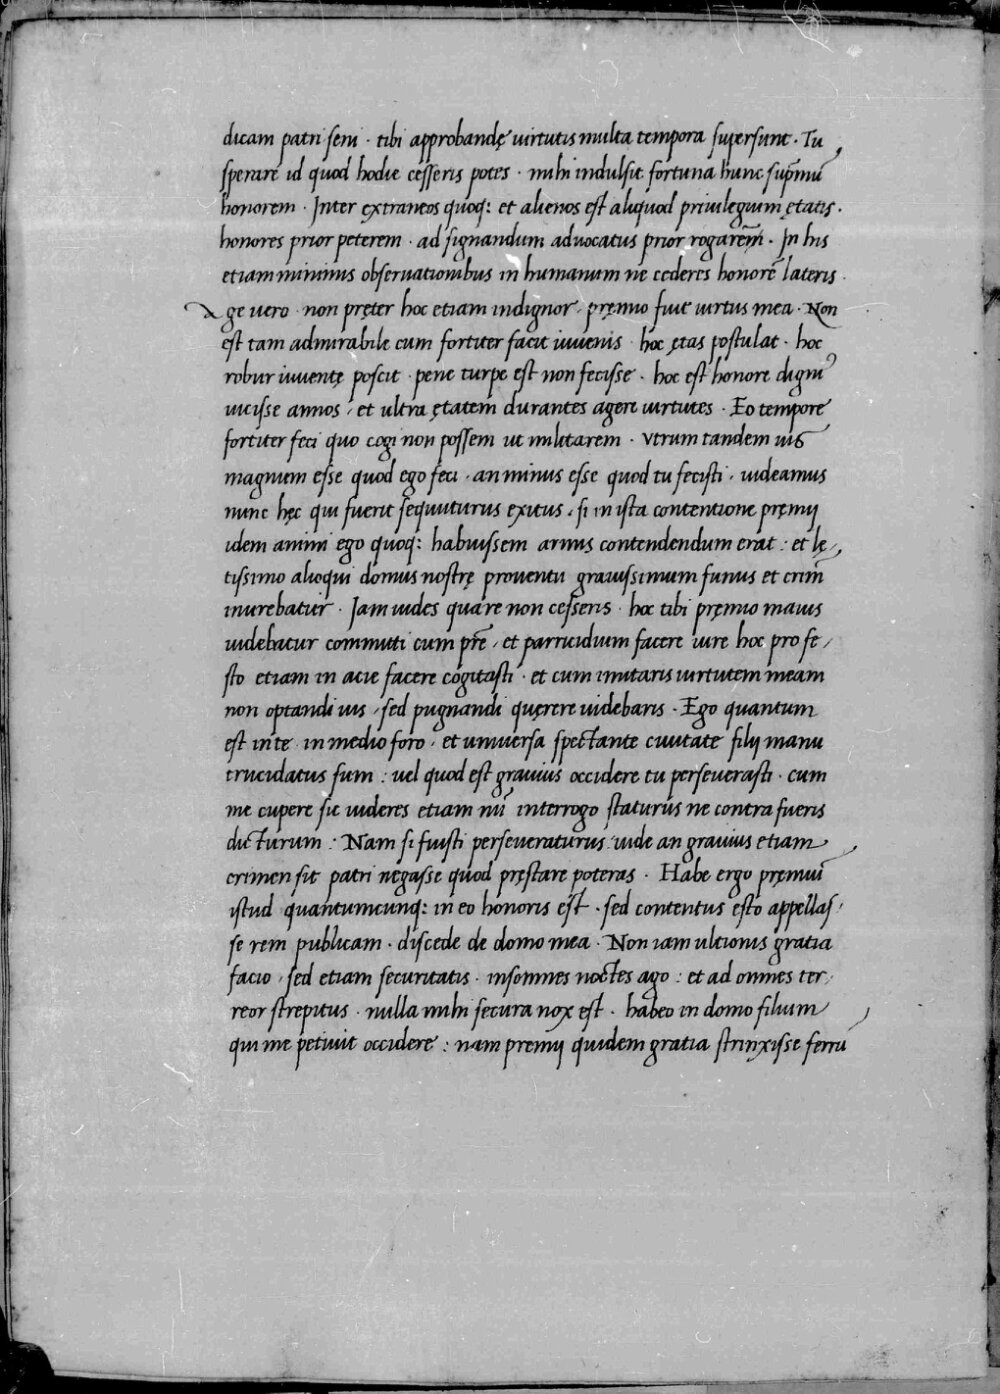 dicam patri seni · tibi approbandę virtutis multa tempora supersunt · Tu
sperare id quod hodie cesseris potes · mihi indulsit fortuna hunc supm̄ū
honorem · Inter extraneos quoq: et alienos est aliquod privilegium ętatis ·
honores prior peterem · ad signandum advocatus prior rogarem̄ · In his
etiam minimis observationibus in humanum ne cederes honorē lateris ·
age vero · non pręter hoc etiam indignor · pręmio fuit virtus mea · Non
est tam admirabile cum fortiter facit iuvenis · hoc ętas postulat · hoc
robur iuventę poscit · pene turpe est non fecisse · hoc est honore dignū
vicisse annos · et ultra ętatem durantes agere virtutes · Eo tempore
fortiter feci quo cogi non possem ut militarem · Vtrum tandem vis
magnum esse quod ego feci · an minus esse quod tu fecisti · videamus
nunc hęc qui fuerit sequuturus exitus · si in ista contentione pręmij
idem animi ego quoq: habuissem armis contendendum erat : et lę,
tissimo alioqui domus nostrę proventu gravissimum funus et crim̄
inurebatur · Iam vides quare non cesseris · hoc tibi pręmio maius
videbatur committi cum pr̄e · et parricidium facere iure hoc profe,
sto etiam in acie facere cogitasti · et cum imitaris virtutem meam
non optandi vis · sed pugnandi quęrere videbaris · Ego quantum
est in te in medio foro · et universa spectante civitate filij manu
trucidatus sum : vel quod est gravius occidere tu perseverasti · cum
me cupere sic videres etiam nū interrogo staturus ne contra fueris
dicturum : Nam si fuisti perseveraturus vide an gravius etiam
crimen sit patri negasse quod pręstare poteras · Habe ergo pręmiū
istud quantumcunq: in eo honoris est · sed contentus esto appellas,
se rem publicam · discede de domo mea · Non iam ultionis gratia
facio · sed etiam securitatis · insomnes noctes ago : et ad omnes ter,
reor strepitus · nulla mihi secura nox est · habeo in domo filium
qui me petivit occidere : nam premij quidem gratia strinxisse ferrū